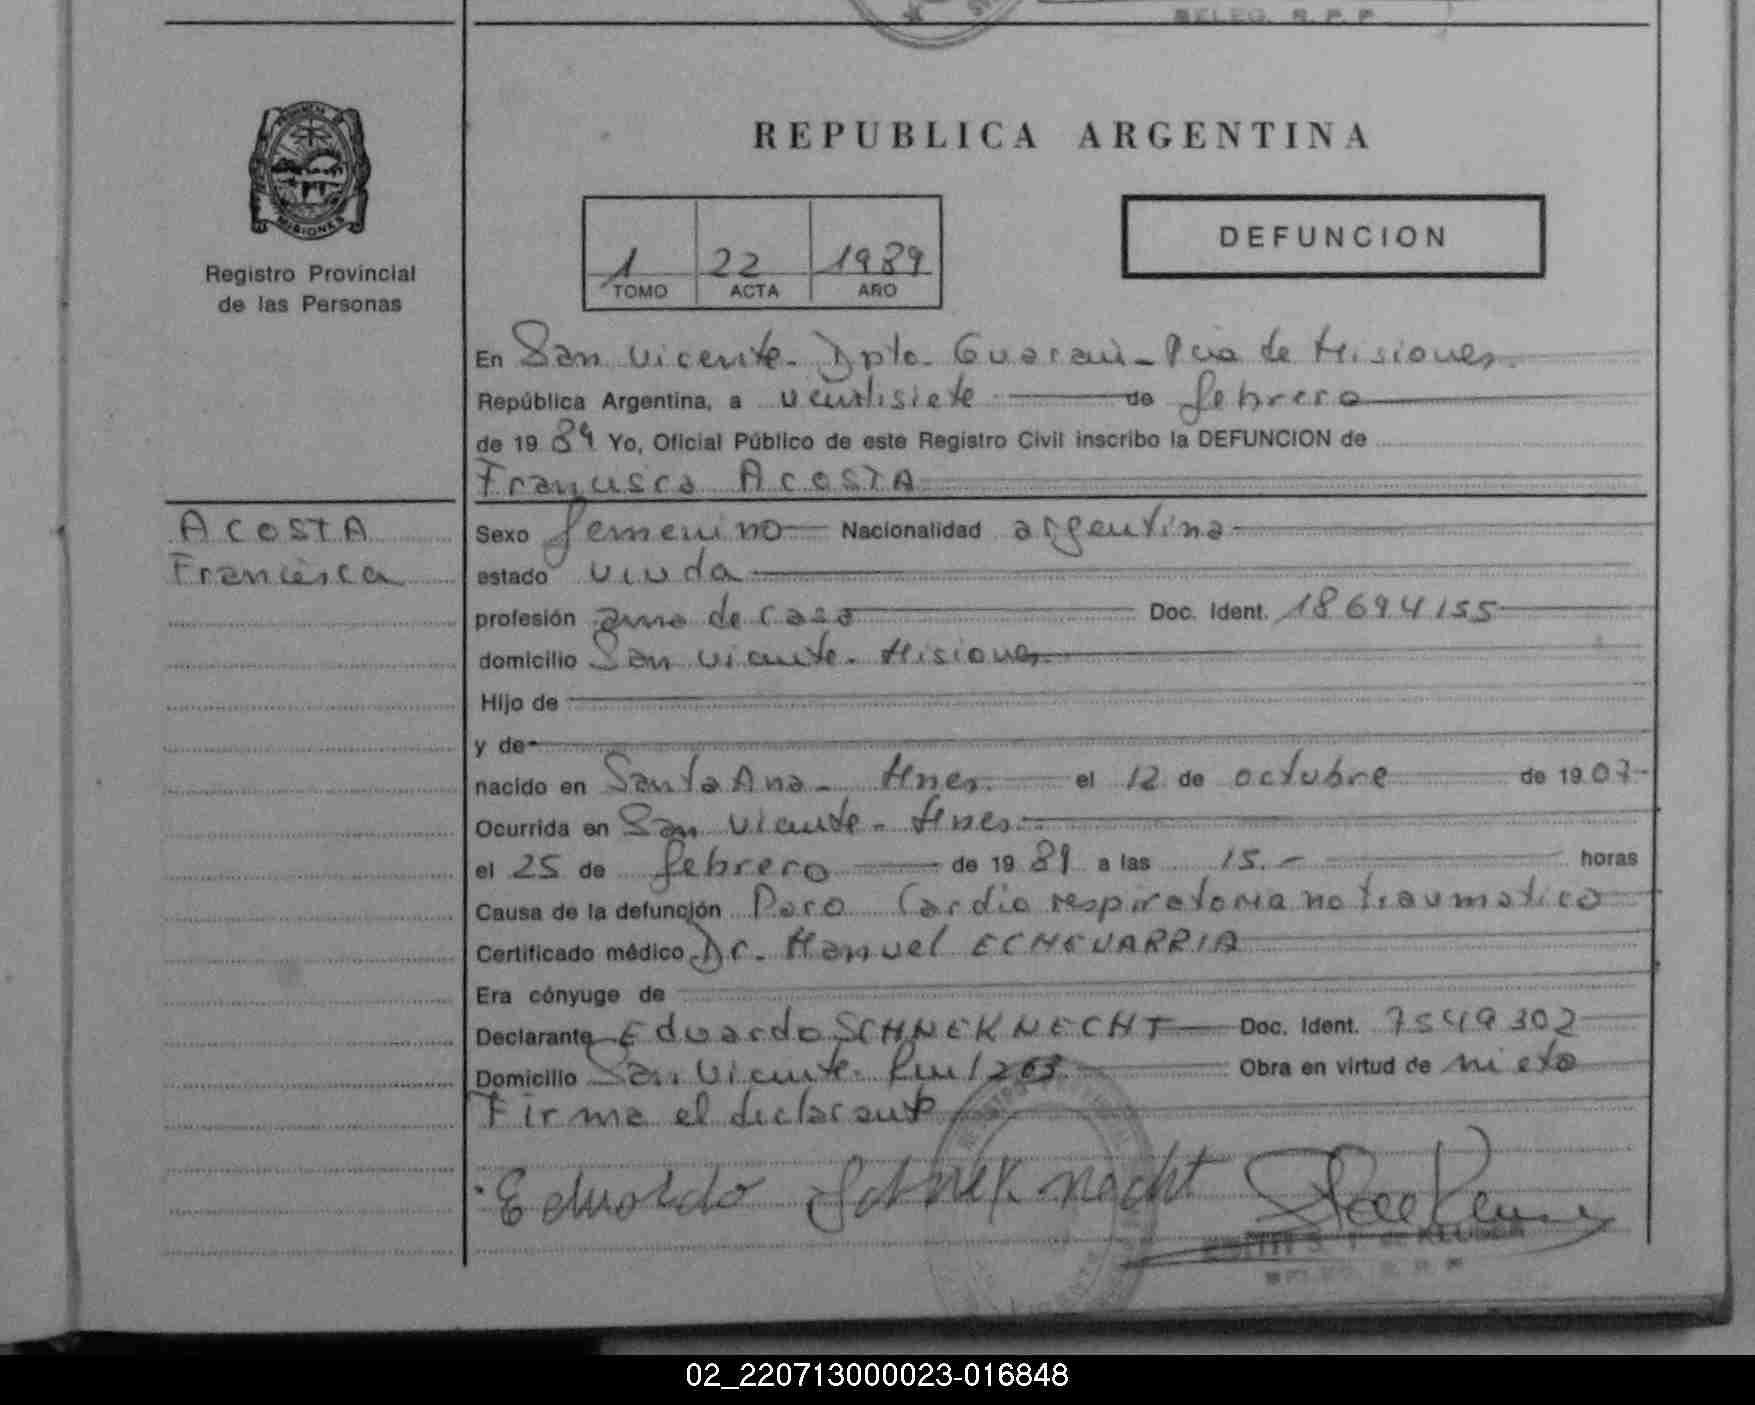 SELEG. R. P. P.
REPUBLICA ARGENTINA
PROVINCIA DE
MISIONES
Registro Provincial
de las Personas
1 22 1989
TOMO ACTA AÑO
DEFUNCION
En San Vicente - Dpto. Guaraní - Pcia de Misiones.
República Argentina, a veintisiete de febrero
de 1989 Yo, Oficial Público de este Registro Civil inscribo la DEFUNCION de
Francisca ACOSTA
ACOSTA
Francisca
Sexo femenino Nacionalidad argentina
estado viuda
profesión ama de casa Doc. Ident. 18694155
domicilio San Vicente - Misiones
Hijo de
y de
nacido en Santa Ana - Mnes. el 12 de octubre de 1907
Ocurrida en San Vicente - Mnes.
el 25 de febrero de 1989 a las 15.- horas
Causa de la defunción Paro Cardio respiratorio no traumatico
Certificado médico Dr. Manuel ECHEVARRIA
Era cónyuge de
Declarante Eduardo SCHNEKNECHT Doc. Ident. 7549302
Domicilio San Vicente. Km 1263 Obra en virtud de nieto
Firma el declarante
Eduardo Schneknecht
SELEG. R. P. P.
02_220713000023-016848